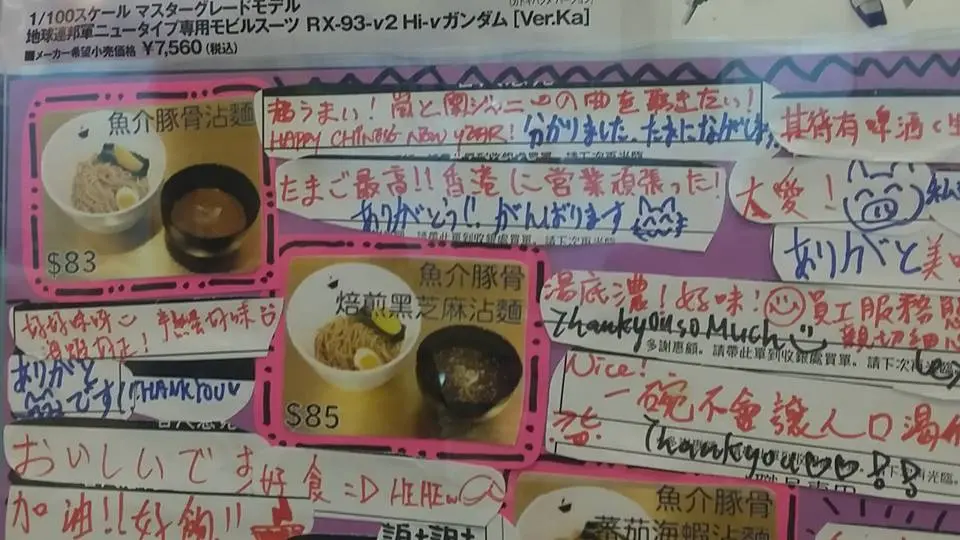 1/100スケール マスターグレードモデル
地球連邦軍ニュータイプ専用モビルスーツ RX-93-ν2 Hi-νガンダム [Ver.Ka]
■メーカー希望小売価格 ¥7,560(税込)
魚介豚骨沾麵
$83
超うまい! 嵐と関ジャニ∞の曲を聴きたい!
HAPPY CHINESE NEW YEAR! 分かりました、たまにながします
請下次再光臨
其待有啤酒
たまご最高!! 香港に営業頑張った!
ありがとう!! がんばります
請帶此單到收銀處買單。請下次再光臨
大愛!
ありがと
魚介豚骨
焙煎黑芝麻沾麵
$85
湯底濃! 好味! 員工服務
親切細心
Thank you so Much
多謝惠顧。請帶此單到收銀處買單。請下次再光臨
好好味呀
好味
ありがと
です!! THANK YOU
Nice!
一碗不會讓人口渴
Thank you
おいしいです 好食 =D HEHE
加油!! 好夠!!
魚介豚骨
蕃茄海蝦沾麵